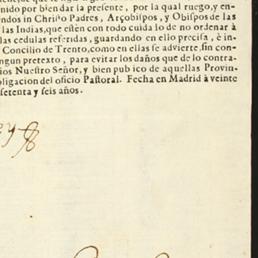 nido por bien dar la presente, por la qual ruego, y en-
ndos in Christo Padres, Arçobispos, y Obispos de las
las Indias, que estèn con todo cuidado de no ordenar à
las cedulas referidas, guardando en ello precisa, è in-
Concilio de Trento, como en ellas se advierte, sin con-
ingun pretexto, para evitar los daños que de lo contra-
ios Nuestro Señor, y bien publico de aquellas Provin-
oligacion del oficio Pastoral. Fecha en Madrid à veinte
setenta y seis años.